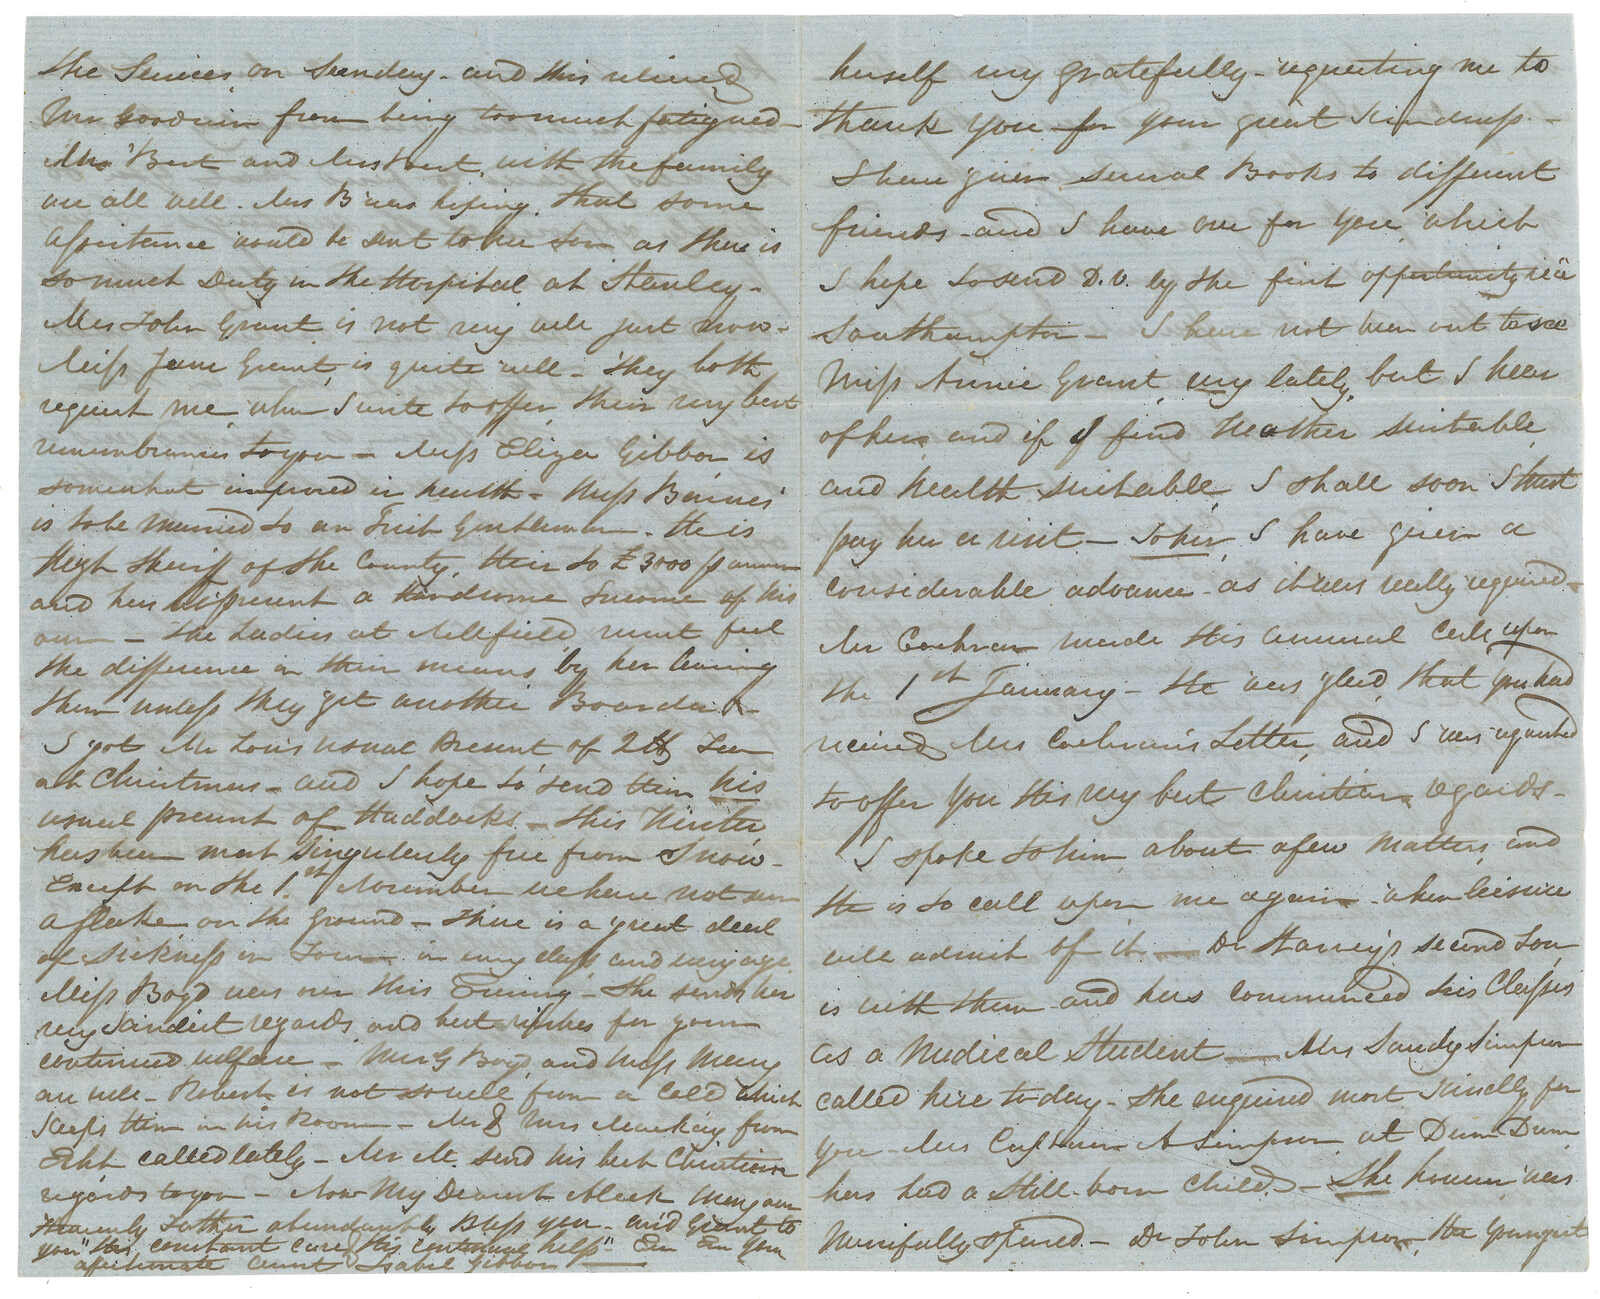 the Services on Sunday - and this relieved
Mr Goodwin from being too much fatigued -
Mrs Best and Miss Best, with the family
are all well. Mrs B was hoping that some
assistance would be sent to her Son as there is
so much Duty in the Hospital at Stanley -
Mrs John Grant is not very well just now -
Miss Jane Grant is quite well - They both
request me when I write to offer their very best
remembrances to you - Miss Eliza Gibbon is
somewhat improved in health - Miss Baines
is to be Married to an Irish Gentleman. He is
High Sheriff of the County, Heir to £3000 p annum
and has at present a handsome Income of his
own - The Ladies at Millfield must feel
the difference in their means by her leaving
them unless they get another Boarder -
I got Mr Low's usual Present of 2 lb Tea
at Christmas - and I hope to send him his
usual present of Haddocks - This Winter
has been most singularly free from Snow -
Except on the 1st November we have not seen
a flake on the ground - There is a great deal
of Sickness in Town in every class and every age
Miss Boyd was over this Evening - She sends her
very kindest regards and best wishes for your
continued welfare - Mrs G Boyd and Miss Mary
are well - Robert is not so well from a Cold which
keeps him in his Room - Mr & Mrs Mackay from
called lately - Mr M. send his best Christian
regards to you - Now My Dearest Meek may our
Heavenly Father abundantly Bless you - and Grant to
you "His constant care, His continual help" - Ever Ever Your
affectionate Aunt Isabel Gibbon
herself very gratefully - requesting me to
thank you for your great kindness. -
I have given several Books to different
friends - and I have one for you, which
I hope to send D.V. by the first opportunity via
Southampton - I have not been out to see
Miss Annie Grant, very lately, but I hear
of her, and if I find Weather suitable
and health suitable I shall soon I trust
pay her a visit - To her, I have given a
considerable advance - as it was really required -
Mr Cochran made His annual Call upon
the 1st January - He was glad that you had
received Mrs Cochran's Letter, and I was requested
to offer you His very best Christian regards -
I spoke to him about a few Matters, and
He is to call upon me again - when leisure
will admit of it - Dr Harvey's second Son
is with them - and has commenced his Classes
as a Medical Student - Mrs Sandy Simpson
called here to-day - She enquired most kindly for
you - Mrs Captain A Simpson at Dum Dum
has had a Still-born Child - She however was
Mercifully spared - Dr John Simpson, the Youngest